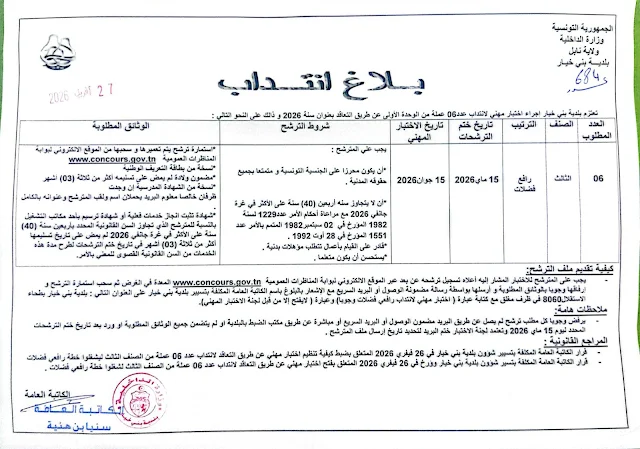 الجمهورية التونسية
وزارة الداخلية
ولاية نابل
بلدية بني خيار
27 أفريل 2026
بلاغ انتداب
تعتزم بلدية بني خيار اجراء اختبار مهني لانتداب عدد06 عملة من الوحدة الأولى عن طريق التعاقد بعنوان سنة 2026 و ذلك على النحو التالي :
العدد المطلوب
الصنف
الترتيب
تاريخ ختم الترشحات
تاريخ الاختبار المهني
شروط الترشح
الوثائق المطلوبة
06
الثالث
رافع فضلات
15 ماي2026
15 جوان2026
يجب على المترشح :
*أن يكون محرزا على الجنسية التونسية و متمتعا بجميع
حقوقه المدنية .
*أن لا يتجاوز سنه أربعين (40) سنة على الأكثر في غرة
جانفي 2026 مع مراعاة أحكام الأمر عدد1229 لسنة
1982 المؤرخ في 02 سبتمبر1982 المتمم بالأمر عدد
1551 المؤرخ في 28 أوت 1992 .
*قادر على القيام بأعمال تتطلب مؤهلات بدنية .
*يستحسن أن يكون متعلما .
*استمارة ترشح يتم تعميرها و سحبها من الموقع الالكتروني لبوابة
المناظرات العمومية www.concours.gov.tn
*نسخة من بطاقة التعريف الوطنية
*مضمون ولادة لم يمض على تسليمه أكثر من ثلاثة (03) أشهر
*نسخة من الشهادة المدرسية إن وجدت
*ظرفان خالصا معلوم البريد يحملان اسم ولقب المترشح وعنوانه بالكامل
*شهادة تثبت انجاز خدمات فعلية أو شهادة ترسيم بأحد مكاتب التشغيل
بالنسبة للمترشح الذي تجاوز السن القانونية المحدد بأربعين سنة (40)
على الأكثر في غرة جانفي 2026 لم يمض على تاريخ تسليمها
أكثر من ثلاثة (03) أشهر في تاريخ ختم الترشحات لطرح مدة هذه
الخدمات من السن القانونية القصوى للمعني بالأمر.
كيفية تقديم ملف الترشح:
يجب على المترشح للاختبار المشار إليه أعلاه تسجيل ترشحه عن بعد عبر الموقع الالكتروني لبوابة المناظرات العمومية www.concours.gov.tn المعدة في الغرض ثم سحب استمارة الترشح و
إرفاقها وجوبا بالوثائق المطلوبة و إرسالها بواسطة رسالة مضمونة الوصول أو البريد السريع مع الاشعار بالبلوغ باسم الكاتبة العامة المكلفة بتسيير شؤون بلدية بني خيار على العنوان التالي : بلدية بني خيار بطحاء
الاستقلال8060 في ظرف مغلق مع كتابة عبارة ( اختبار مهني لانتداب رافعي فضلات وجوبا) وعبارة ( لايفتح إلا من قبل لجنة الاختبار المهني).
ملاحظات هامة:
- يرفض وجوبا كل مطلب ترشح لم يصل عن طريق البريد مضمون الوصول أو البريد السريع أو مباشرة عن طريق مكتب الضبط بالبلدية أو لم يتضمن جميع الوثائق المطلوبة أو ورد بعد تاريخ ختم الترشحات
المحدد ليوم 15 ماي 2026 وتعتمد لجنة الاختبار ختم البريد لتحديد تاريخ إرسال ملف المترشح .
المراجع القانونية :
- قرار الكاتبة العامة المكلفة بتسيير شؤون بلدية بني خيار في 26 فيفري 2026 المتعلق بضبط كيفية تنظيم اختبار مهني عن طريق التعاقد لانتداب عدد 06 عملة من الصنف الثالث ليشغلوا خطة رافعي فضلات
- قرار الكاتبة العامة المكلفة بتسيير شؤون بلدية بني خيار ومؤرخ في 26 فيفري 2026 المتعلق بفتح اختبار مهني عن طريق التعاقد لانتداب عدد 06 عملة من الصنف الثالث ليشغلوا خطة رافعي فضلات .
الكاتبة العامة
الكاتبة العامة
سنيا بن هنية